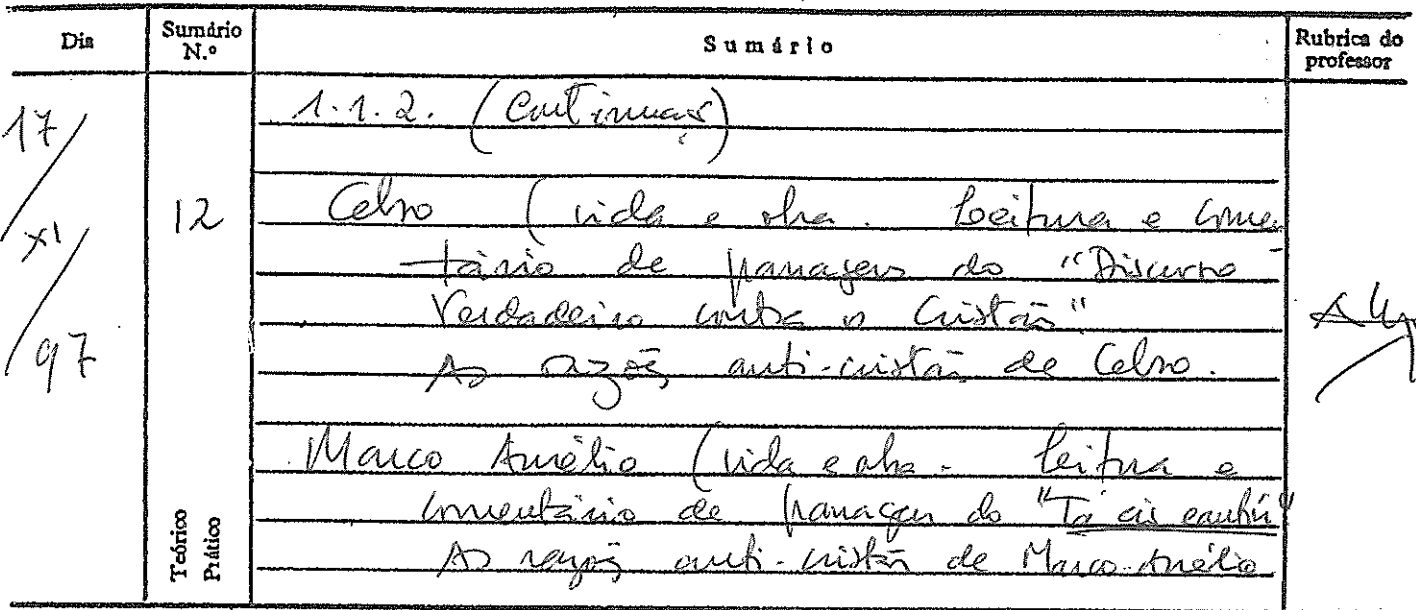 Dia Sumário N.º Sumário Rubrica do professor
17/XI/97
12
Teórico
Prático
1.1.2. (Continuaç)
Celso (vida e obra. Leitura e comen
tário de passagens do "Discurso
Verdadeiro contra os Cristãos"
As razões anti-cristãs de Celso.
Marco Aurélio (vida e obra. Leitura e
comentário de passagens do "Tà eis eautón"
As razões anti-cristãs de Marco-Aurélio